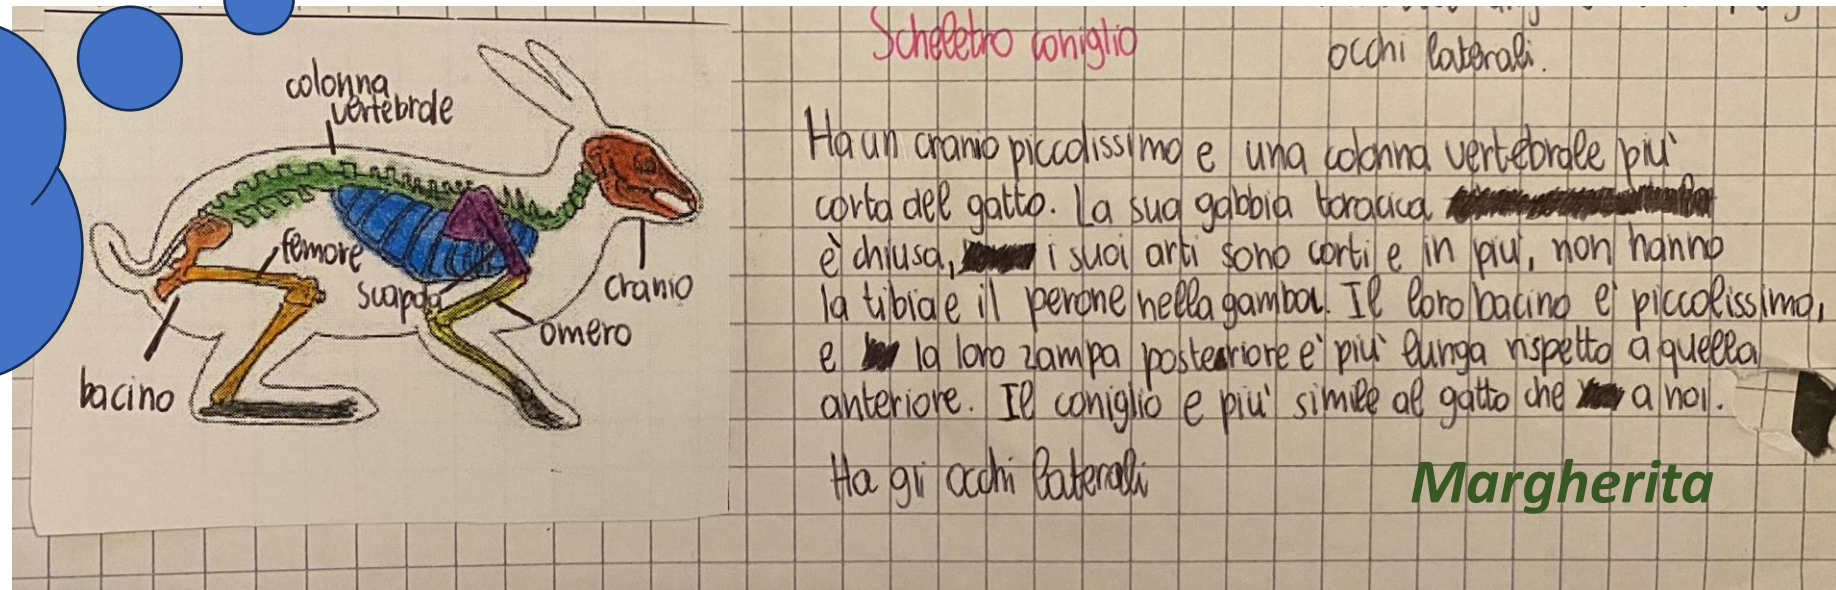 colonna
vertebrale
femore
scapola
cranio
omero
bacino
Scheletro coniglio
occhi laterali.
Ha un cranio piccolissimo e una colonna vertebrale più
corta del gatto. La sua gabbia toracica
è chiusa, i suoi arti sono corti e in più, non hanno
la tibia e il perone nella gamba. Il loro bacino è piccolissimo,
e la loro zampa posteriore è più lunga rispetto a quella
anteriore. Il coniglio e più simile al gatto che a noi.
Ha gli occhi laterali
Margherita